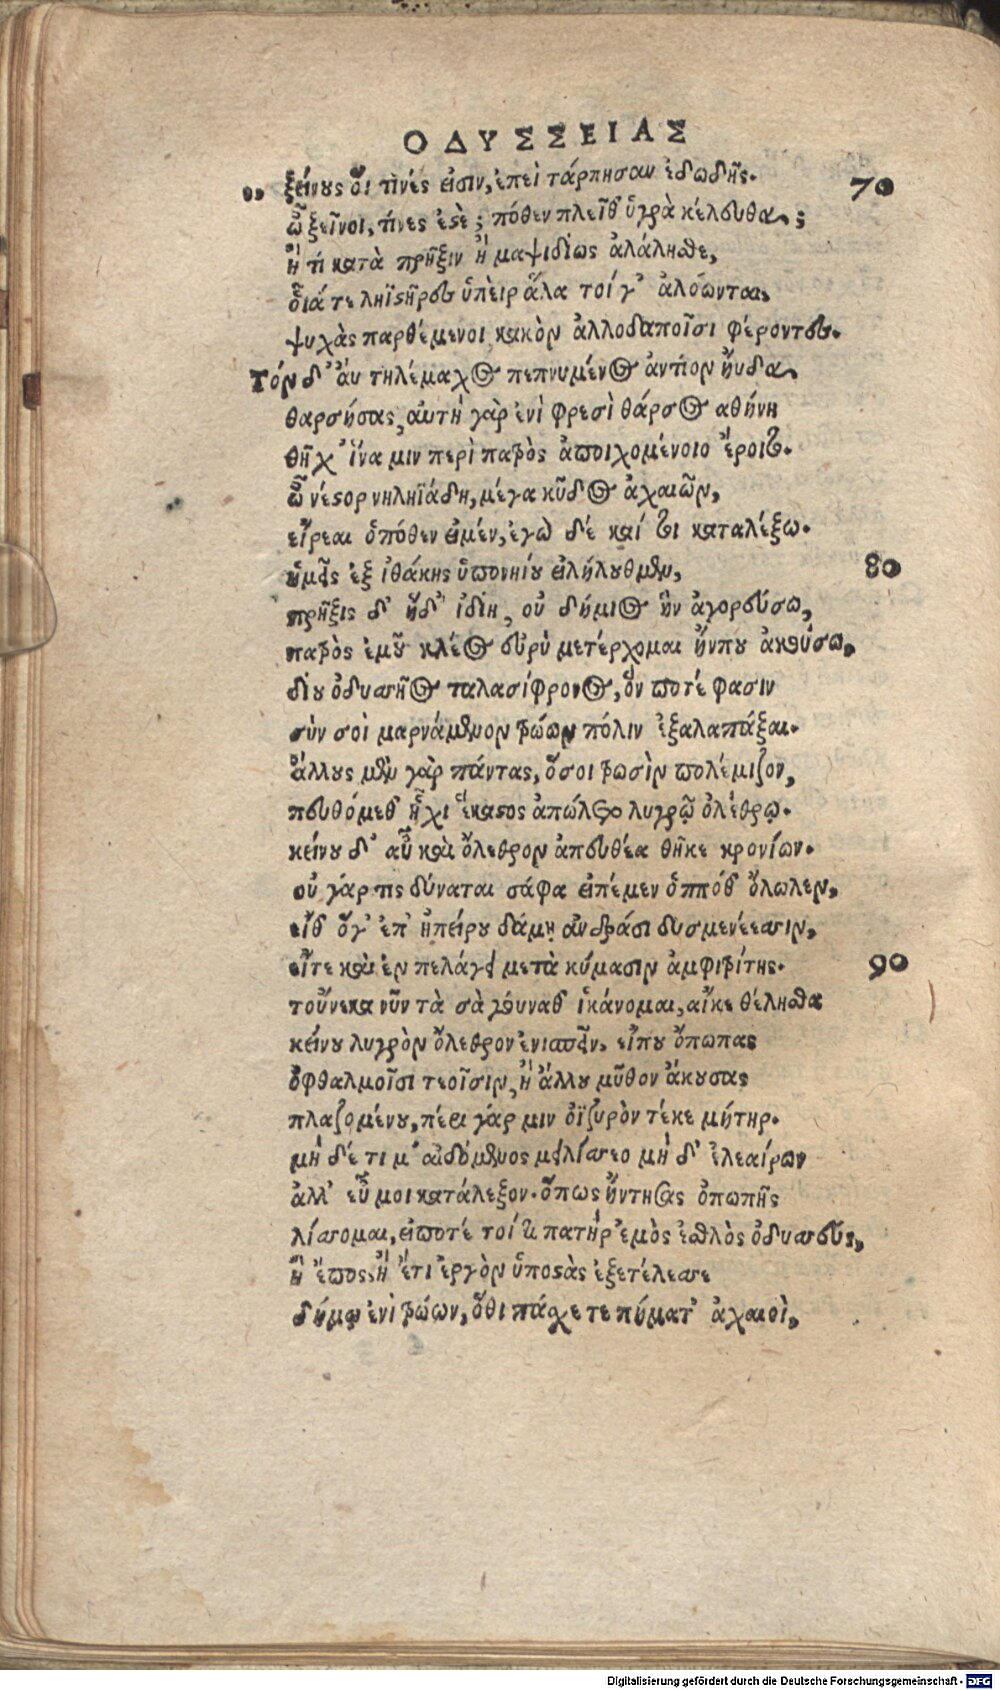 ΟΔΥΣΣΕΙΑΣ
„ ξείνους οἵ τινές εἰσιν, ἐπεὶ τάρπησαν ἐδωδῆς. 70
ὦ ξεῖνοι, τίνες ἐστὲ; πόθεν πλεῖθ' ὑγρὰ κέλευθα;
ἤ τι κατὰ πρῆξιν ἢ μαψιδίως ἀλάλησθε,
οἷά τε ληϊστῆρες ὑπεὶρ ἅλα τοί γ' ἀλόωνται,
ψυχὰς παρθέμενοι, κακὸν ἀλλοδαποῖσι φέροντες.
Τόν δ' ἀυ τηλέμαχος πεπνυμένος ἀντίον ηὔδα,
θαρσήσας, αὐτὴ γὰρ ἐνὶ φρεσὶ θάρσος ἀθήνη
θῆχ' ἵνα μιν περὶ πατρὸς ἀποιχομένοιο ἔροιτο.
ὦ νέστορ νηληϊάδη, μέγα κῦδος ἀχαιῶν,
εἴρεαι ὁπόθεν εἰμέν, ἐγὼ δέ καί τοι καταλέξω.
ἡμεῖς ἐξ ἰθάκης ὑπονηίου εἰλήλουθμεν, 80
πρῆξις δ' ἥδ' ἰδίη, οὐ δήμιος ἣν ἀγορεύσω,
πατρὸς ἐμοῦ κλέος εὐρὺ μετέρχομαι ἤνπου ἀκούσω,
δίου ὀδυσσῆος ταλασίφρονος, ὅν ποτέ φασιν
σὺν σοὶ μαρνάμενον τρώων πόλιν ἐξαλαπάξαι.
ἄλλους μὲν γὰρ πάντας, ὅσοι τρωσὶν πολέμιζον,
πευθόμεθ' ἧχι ἕκαστος ἀπώλετο λυγρῷ ὀλέθρῳ.
κείνου δ' αὖ καὶ ὄλεθρον ἀπευθέα θῆκε κρονίων.
οὐ γάρ τις δύναται σάφα εἰπέμεν ὁππόθ' ὄλωλεν,
εἴθ' ὅγ' ἐπ' ἠπείρου δάμη ἀνδράσι δυσμενέεσσιν,
εἴτε καὶ ἐν πελάγει μετὰ κύμασιν ἀμφιτρίτης. 90
τοὔνεκα νῦν τὰ σὰ γούναθ' ἱκάνομαι, αἴκε θέλησθα
κείνου λυγρὸν ὄλεθρον ἐνισπεῖν, εἴπου ὄπωπας
ὀφθαλμοῖσι τεοῖσιν, ἢ ἄλλου μῦθον ἄκουσας
πλαζομένου, πέρι γάρ μιν ὀϊζυρὸν τέκε μήτηρ.
μὴ δέ τι μ' αἰδόμενος μειλίσσεο μὴ δ' ἐλεαίρων
ἀλλ' εὖ μοι κατάλεξον. ὅπως ἤντησας ὀπωπῆς
λίσσομαι, εἴποτέ τοί τι πατὴρ ἐμὸς ἐσθλὸς ὀδυσσεὺς,
ἢ ἔπος, ἢ ἔτι ἔργον ὑποστὰς ἐξετέλεσσε
δήμῳ ἐνὶ τρώων, ὅθι πάσχετε πήματ' ἀχαιοὶ,
Digitalisierung gefördert durch die Deutsche Forschungsgemeinschaft - DFG